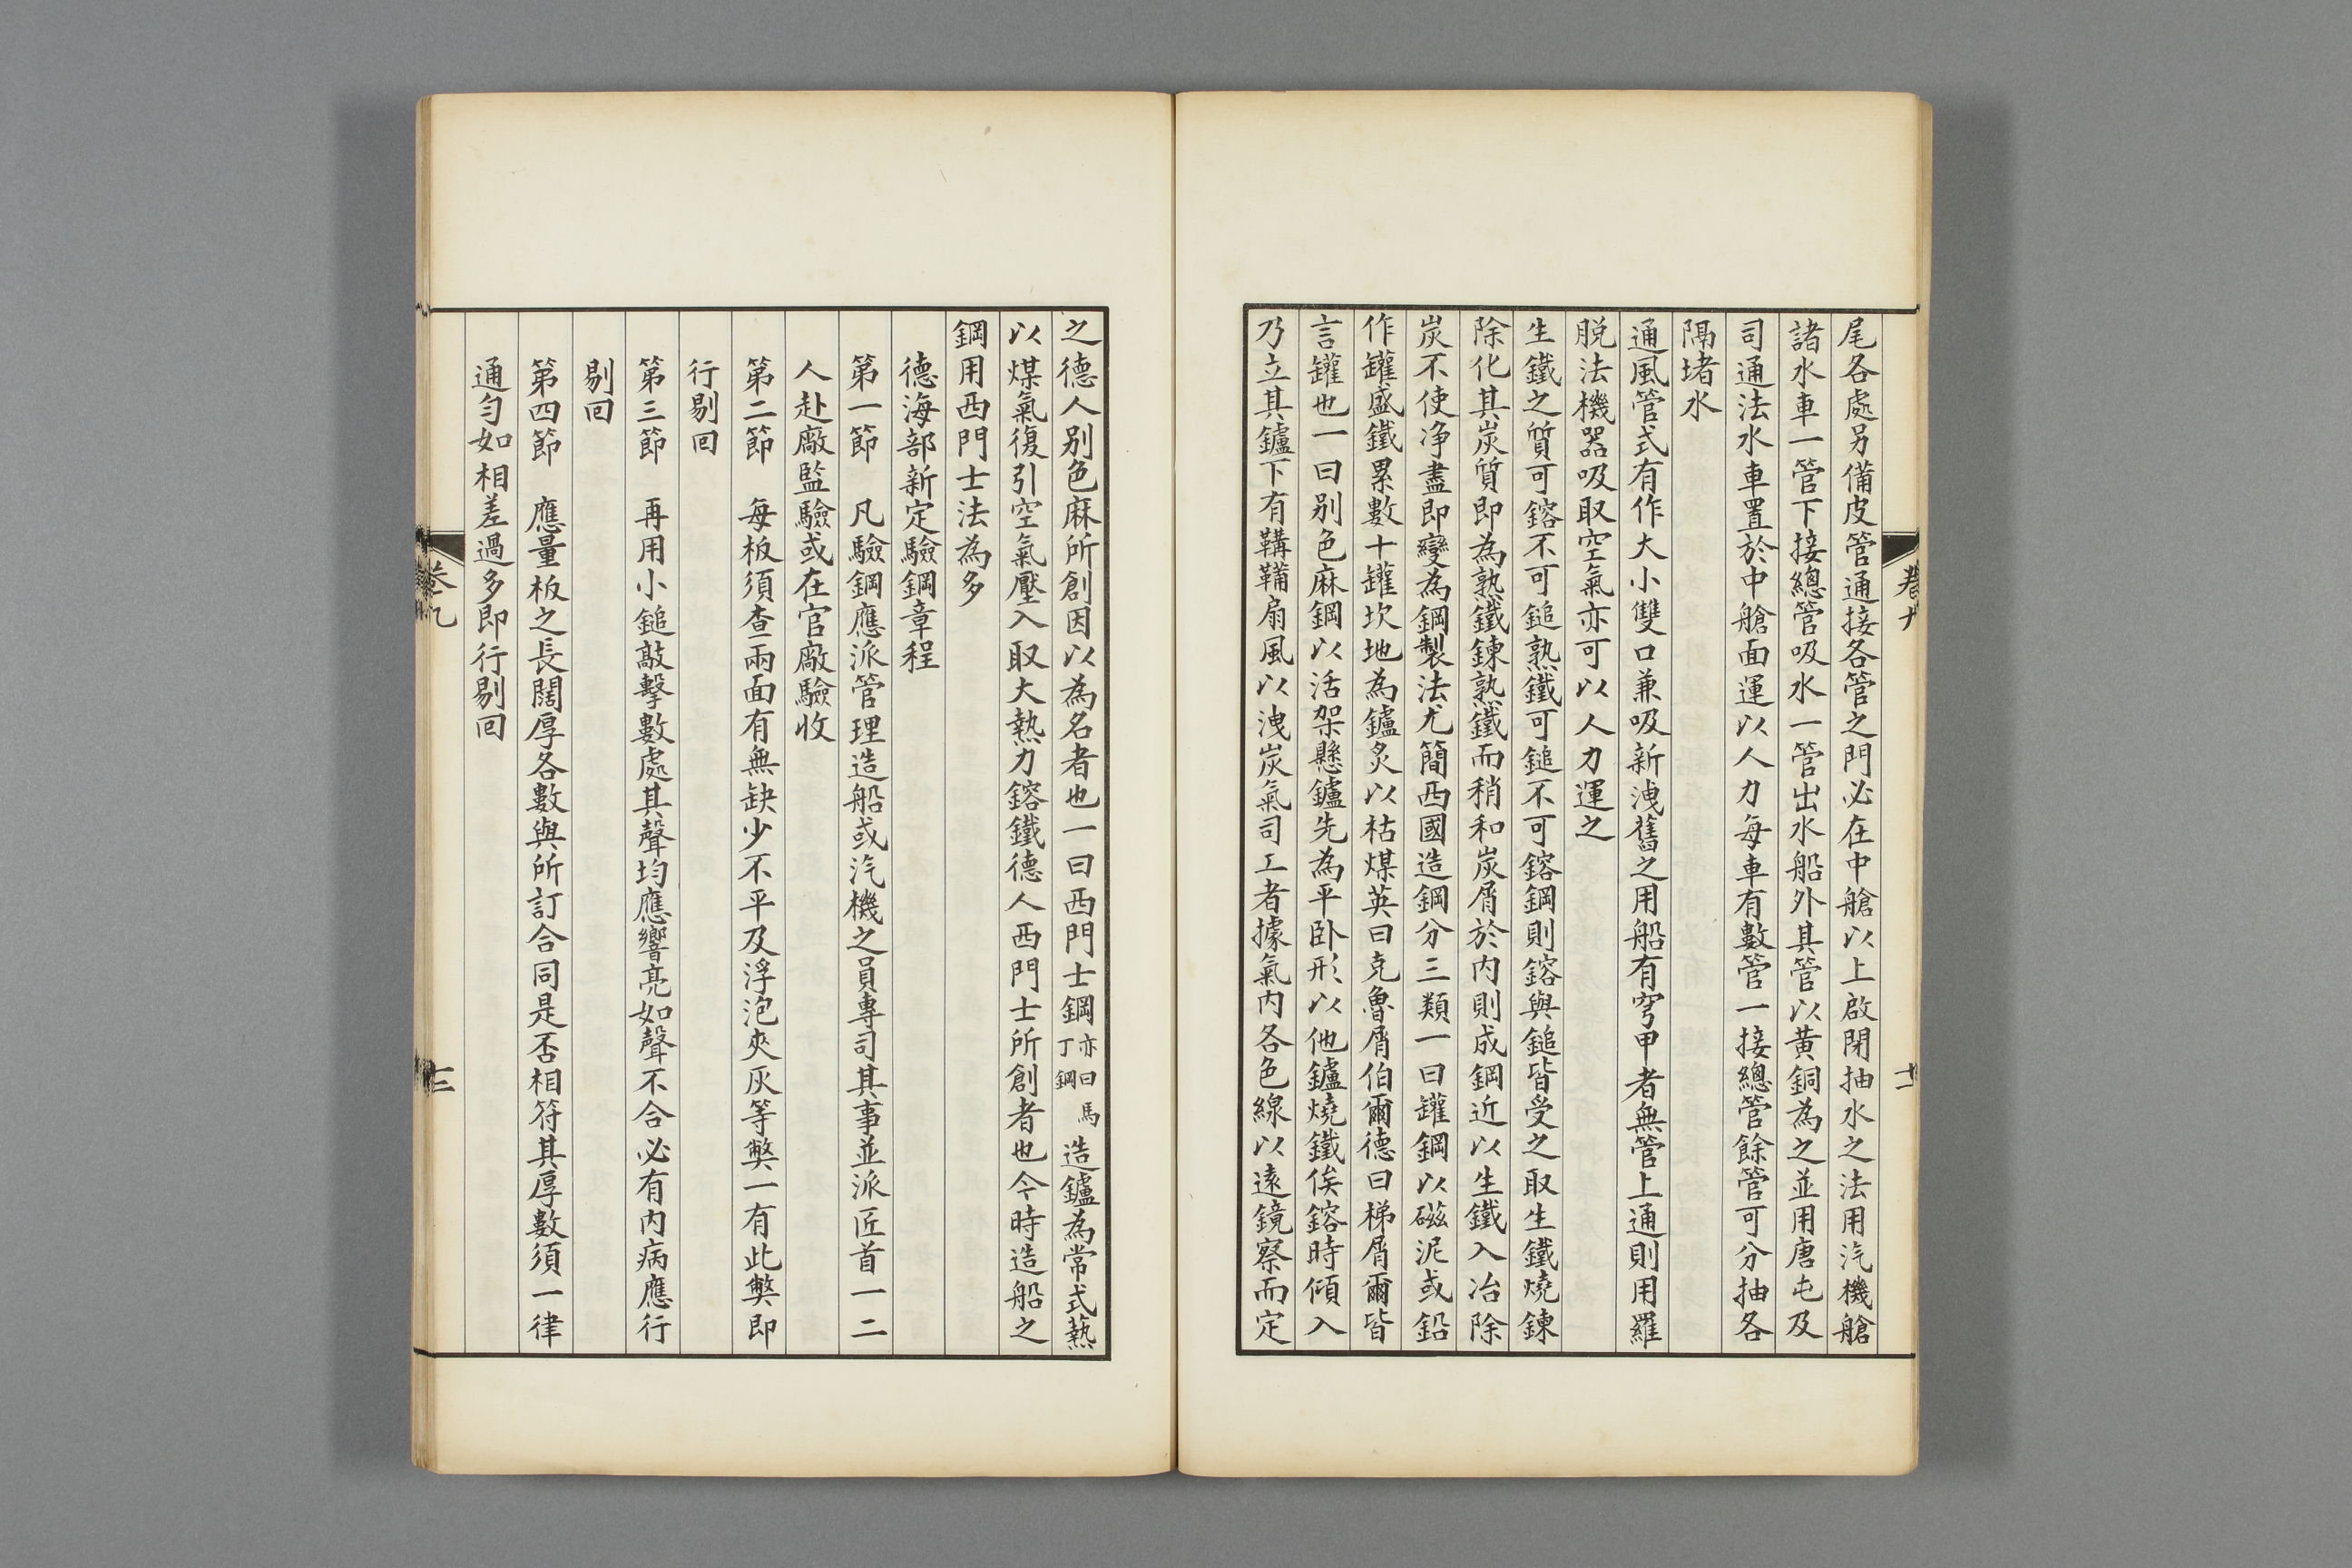 尾各處另備皮管通接各管之門必在中艙以上啟閉抽水之法用汽機艙
諸水車一管下接總管吸水一管出水船外其管以黃銅為之並用唐屯及
司通法水車置於中艙面運以人力每車有數管一接總管餘管可分抽各
隔堵水
通風管式有作大小雙口兼吸新洩舊之用船有穹甲者無管上通則用羅
脫法機器吸取空氣亦可以人力運之
生鐵之質可鎔不可鎚熟鐵可鎚不可鎔鋼則鎔與鎚皆受之取生鐵燒鍊
除化其炭質即為熟鐵鍊熟鐵而稍和炭屑於內則成鋼近以生鐵入冶除
炭不使净盡即變為鋼製法尤簡西國造鋼分三類一曰罐鋼以磁泥或鉛
作罐盛鐵累數十罐坎地為鑪炙以枯煤英曰克魯屑伯爾德曰梯屑爾皆
言罐也一曰别色麻鋼以活架懸鑪先為平卧形以他鑪燒鐵俟鎔時傾入
乃立其鑪下有鞲鞴扇風以洩炭氣司工者據氣內各色線以遠鏡察而定
之德人别色麻所創因以為名者也一曰西門士鋼亦曰馬丁鋼造鑪為常式熱
以煤氣復引空氣壓入取大熱力鎔鐵德人西門士所創者也今時造船之
鋼用西門士法為多
德海部新定驗鋼章程
第一節 凡驗鋼應派管理造船或汽機之員專司其事並派匠首一二
人赴廠監驗或在官廠驗收
第二節 每板須查兩面有無缺少不平及浮泡夾灰等獘一有此獘即
行剔回
第三節 再用小鎚敲擊數處其聲均應響亮如聲不合必有內病應行
剔回
第四節 應量板之長闊厚各數與所訂合同是否相符其厚數須一律
通勻如相差過多即行剔回